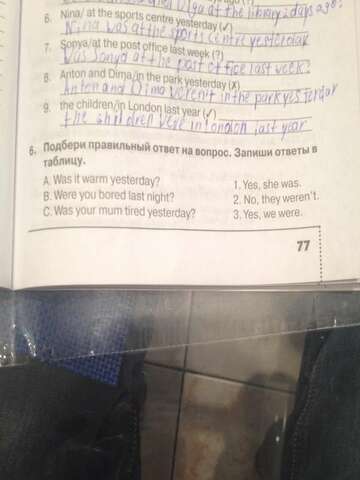 Olga at the library 2 days ago?
6. Nina/ at the sports centre yesterday (✓)
Nina was at the sports centre yesterday
7. Sonya/at the post office last week (?)
Was Sonya at the post office last week?
8. Anton and Dima/in the park yesterday (x)
Anton and Dima weren't in the park yesterday
9. the children/in London last year (✓)
the children were in London last year
6. Подбери правильный ответ на вопрос. Запиши ответы в
таблицу.
A. Was it warm yesterday? 1. Yes, she was.
B. Were you bored last night? 2. No, they weren't.
C. Was your mum tired yesterday? 3. Yes, we were.
77